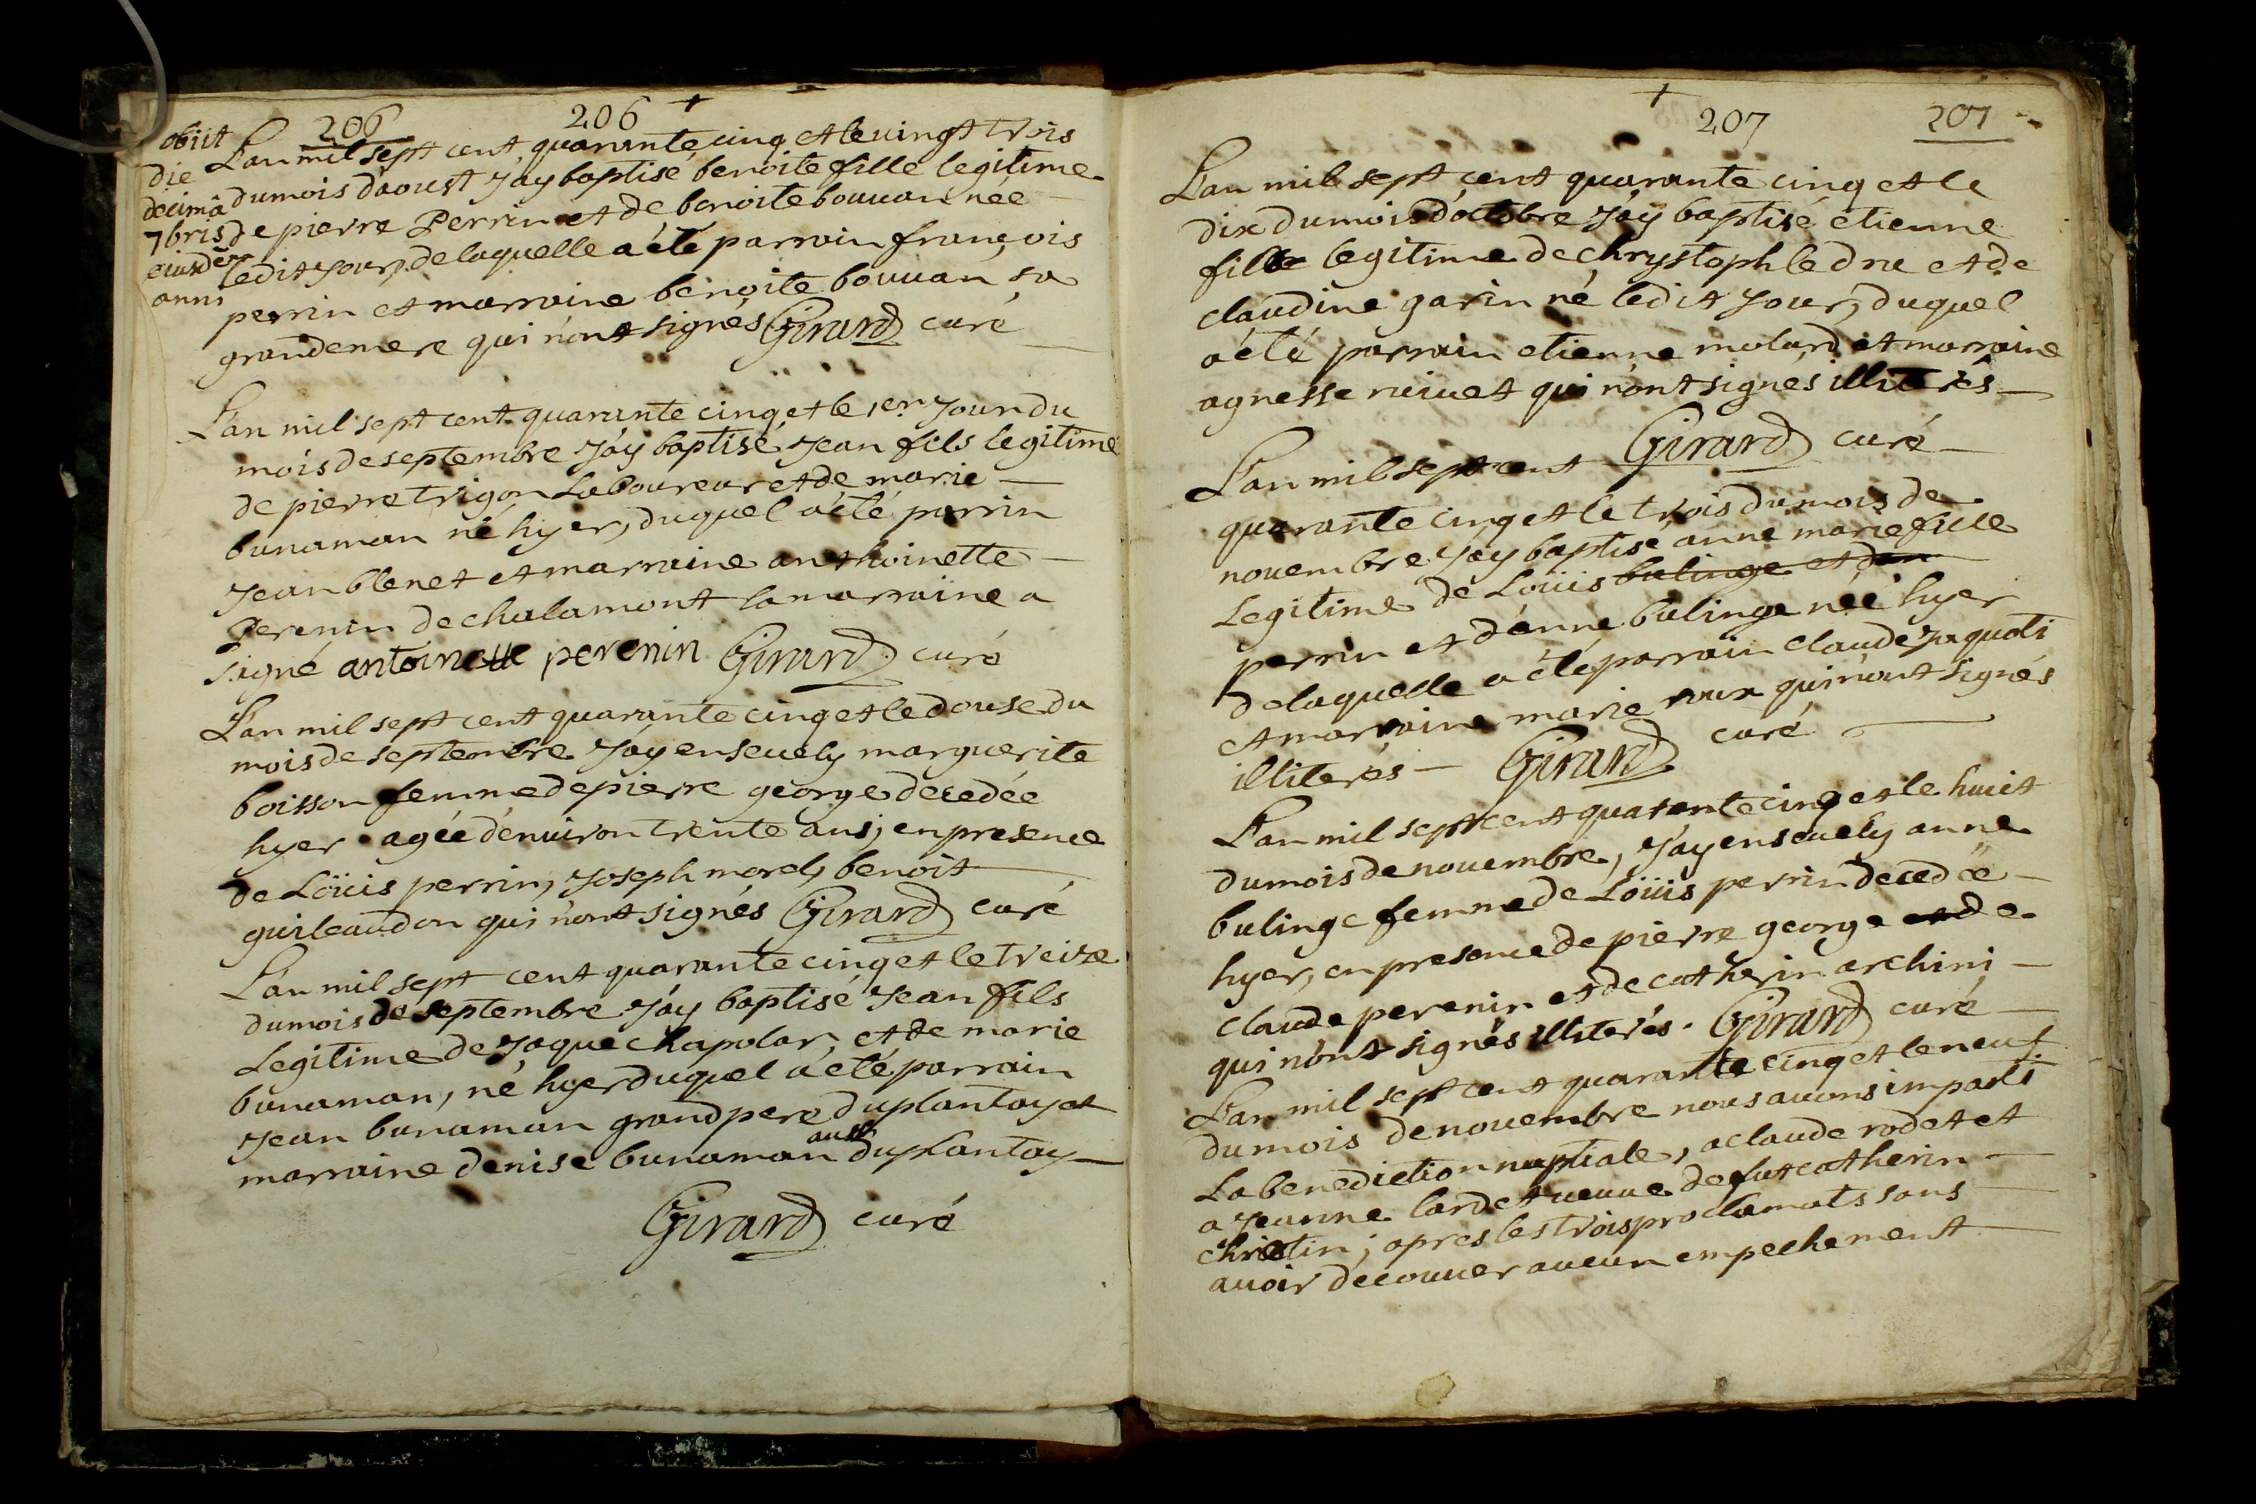 206
206 +
obiit
die
decimâ
7bris
eiusdem
anni
L'an mil sept cent quarante cinq et le vingt trois
du mois d'aoust J'ay baptisé benoite fille legitime
de pierre Perrin et de benoite bouvan née
ledit Jour, de laquelle a été parrain françois
perrin et marraine benoite bouvan, sa
grandemere qui n'ont signés Girard curé
L'an mil sept cent quarante cinq et le 1er Jour du
mois de septembre J'ay baptisé Jean fils legitime
de pierre trigon laboureur et de marie
bunaman né hyer, duquel a été parrin
Jean blenet et marraine anthoinette
Perenin de chalamont la marraine a
signé antoinette perenin Girard curé
L'an mil sept cent quarante cinq et le douse du
mois de septembre J'ay ensevely marguerite
boisson femme de pierre george decedée
hyer agée d'environ trente ans, en presence
de Loüis perrin, Joseph morel, benoit
guilaudon qui n'ont signés Girard curé
L'an mil sept cent quarante cinq et le treize
du mois de septembre J'ay baptisé Jean fils
Legitime de Jaque Chapolar, et de marie
bunaman, né hyer duquel a été parrain
Jean bunaman grand pere du plantay et
marraine denise bunaman aussi du plantay
Girard curé
+
207
207
L'an mil sept cent quarante cinq et le
dix du mois d'octobre J'ay baptisé etienne
fils legitime de chrystophle dru et de
claudine garin né ledit Jour, duquel
a été parrain etienne molard et marraine
agnesse nivet qui n'ont signés illiterés
Girard curé
L'an mil sept cent
quarante cinq et le trois du mois de
novembre J'ay baptisé anne marie fille
Legitime de Loüis bulinge et dan
perrin et d'anne bulinge née hyer
de laquelle a été parrain claude Jaquoti
et marraine marie roux qui n'ont signés
illiterés Girard curé
L'an mil sept cent quarante cinq et le huict
du mois de novembre, J'ay ensevely anne
bulinge femme de Loüis perrin decedée
hyer, en presence de pierre george et de
claude perenin et de catherin archini
qui n'ont signés illiterés. Girard curé
L'an mil sept cent quarante cinq et le neuf
du mois de novembre nous avons imparti
La benediction nuptiale, a claude rodet et
a Jeanne lardet veuve de fut catherin
chrietin; apres les trois proclamats sans
avoir decouver aucun empechement